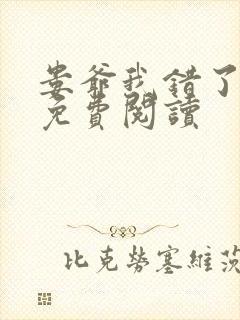 娄爺我錯了
免費閱讀
比克勞塞維茨